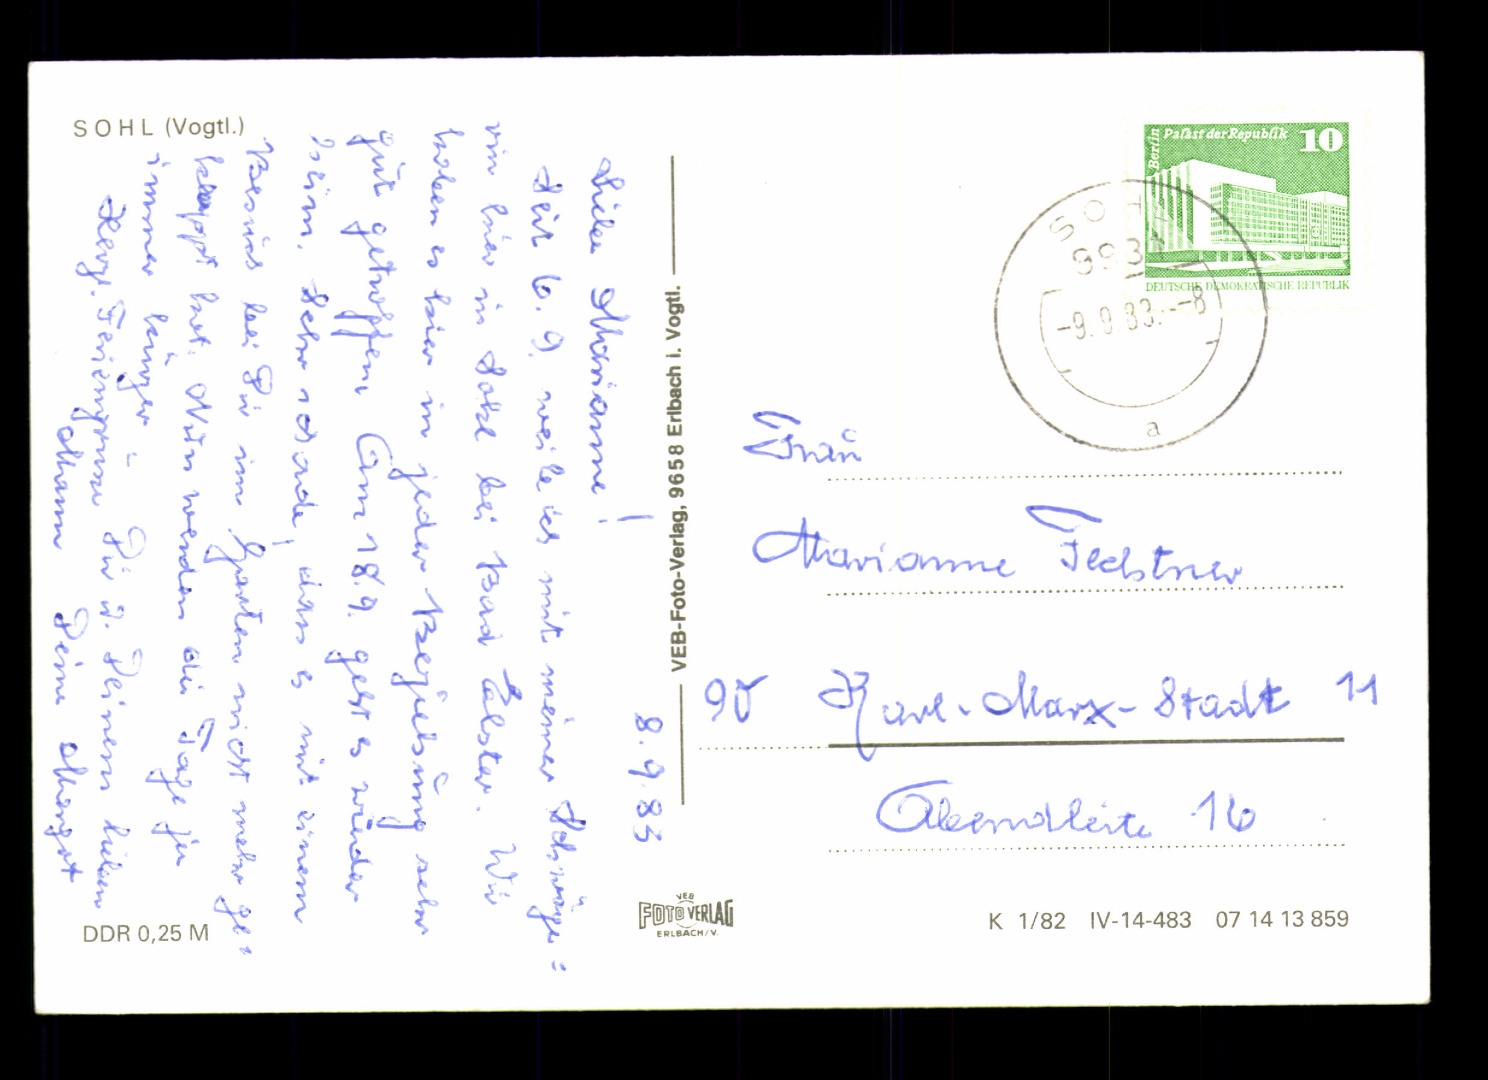 SOHL (Vogtl.)
8.9.83
Liebe Marianne!
Seit 6.9. weile ich mit meiner Schwäge=
rin hier in Sohl bei Bad Elster. Wir
haben es hier in jeder Beziehung sehr
gut getroffen. Am 18.9. geht es wieder
heim. Sehr schade, dass es mit einem
Besuch bei Dir im Garten nicht mehr ge=
klappt hat. Nun werden die Tage ja
immer kürzer –
Herzl. Feriengrüsse Dir u. Deinem lieben
Mann Deine Margot
DDR 0,25 M
VEB-Foto-Verlag, 9658 Erlbach i. Vogtl.
VEB
FOTO VERLAG
ERLBACH/V.
Berlin
Palast der Republik 10
DEUTSCHE DEMOKRATISCHE REPUBLIK
SOHL
9931
-9.9.83.--8
a
Frau
Marianne Fechtner
90 Karl-Marx-Stadt 11
Abendleite 16
K 1/82 IV-14-483 07 14 13 859